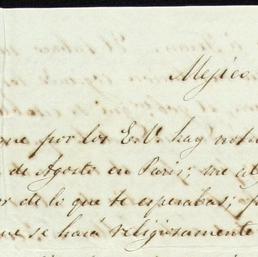 Mejico
por los E.U. hay noti
de Agosto en Paris; me al
or de lo que te esperabas; p
ue se hará religiosamente